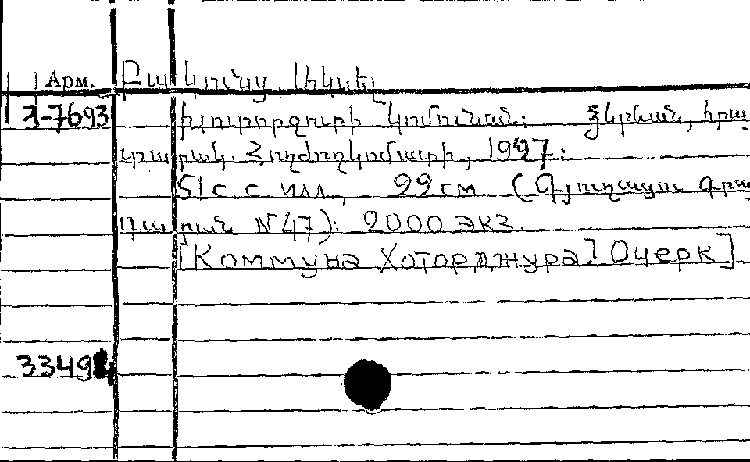 Арм. Բակունց Ակսել
3-7693 Խլուորզուրի կոմունան: Երևան, հրա
տարակ. Հողժողկոմատի, 1927.
51 с. с илл., 22 см (Գյուղացու գրա
դարան N 47): 2000 экз.
[Коммуна Хоторджура] Очерк]
3349